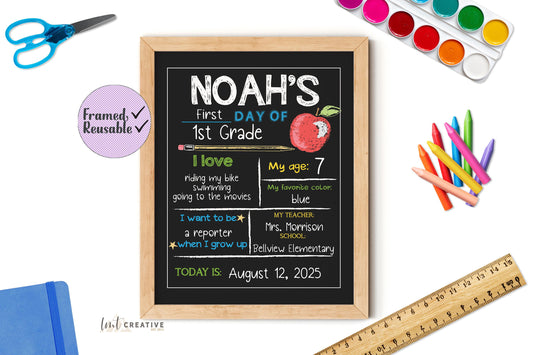 NOAH'S
First DAY OF
1st Grade
I love
riding my bike
swimming
going to the movies
My age: 7
My favorite color:
blue
I want to be
a reporter
when I grow up
MY TEACHER:
Mrs. Morrison
SCHOOL:
Bellview Elementary
TODAY IS: August 12, 2025
Framed,
Reusable
lmt CREATIVE